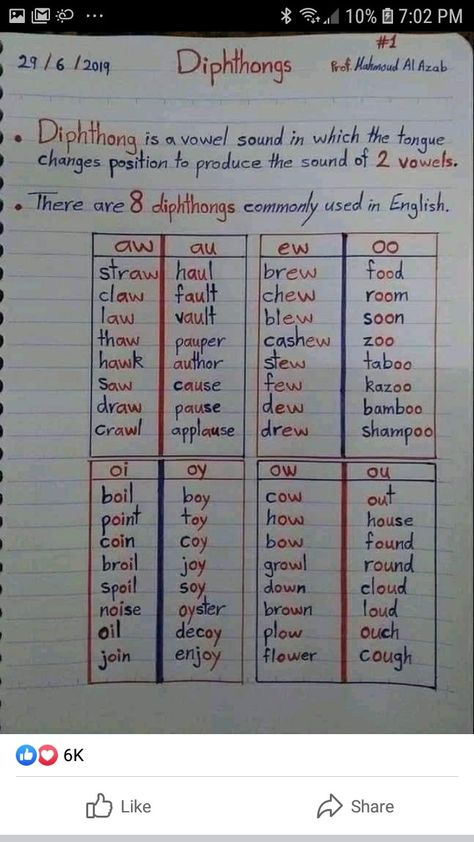 10% 7:02 PM
#1
29/6/2019 Diphthongs Prof. Mahmoud Al Azab
• Diphthong is a vowel sound in which the tongue
changes position to produce the sound of 2 vowels.
• There are 8 diphthongs commonly used in English.
aw au ew oo
straw haul brew food
claw fault chew room
law vault blew soon
thaw pauper cashew zoo
hawk author stew taboo
saw cause few kazoo
draw pause dew bamboo
crawl applause drew shampoo
oi oy ow ou
boil boy cow out
point toy how house
coin coy bow found
broil joy growl round
spoil soy down cloud
noise oyster brown loud
oil decoy plow ouch
join enjoy flower cough
6K
Like Share